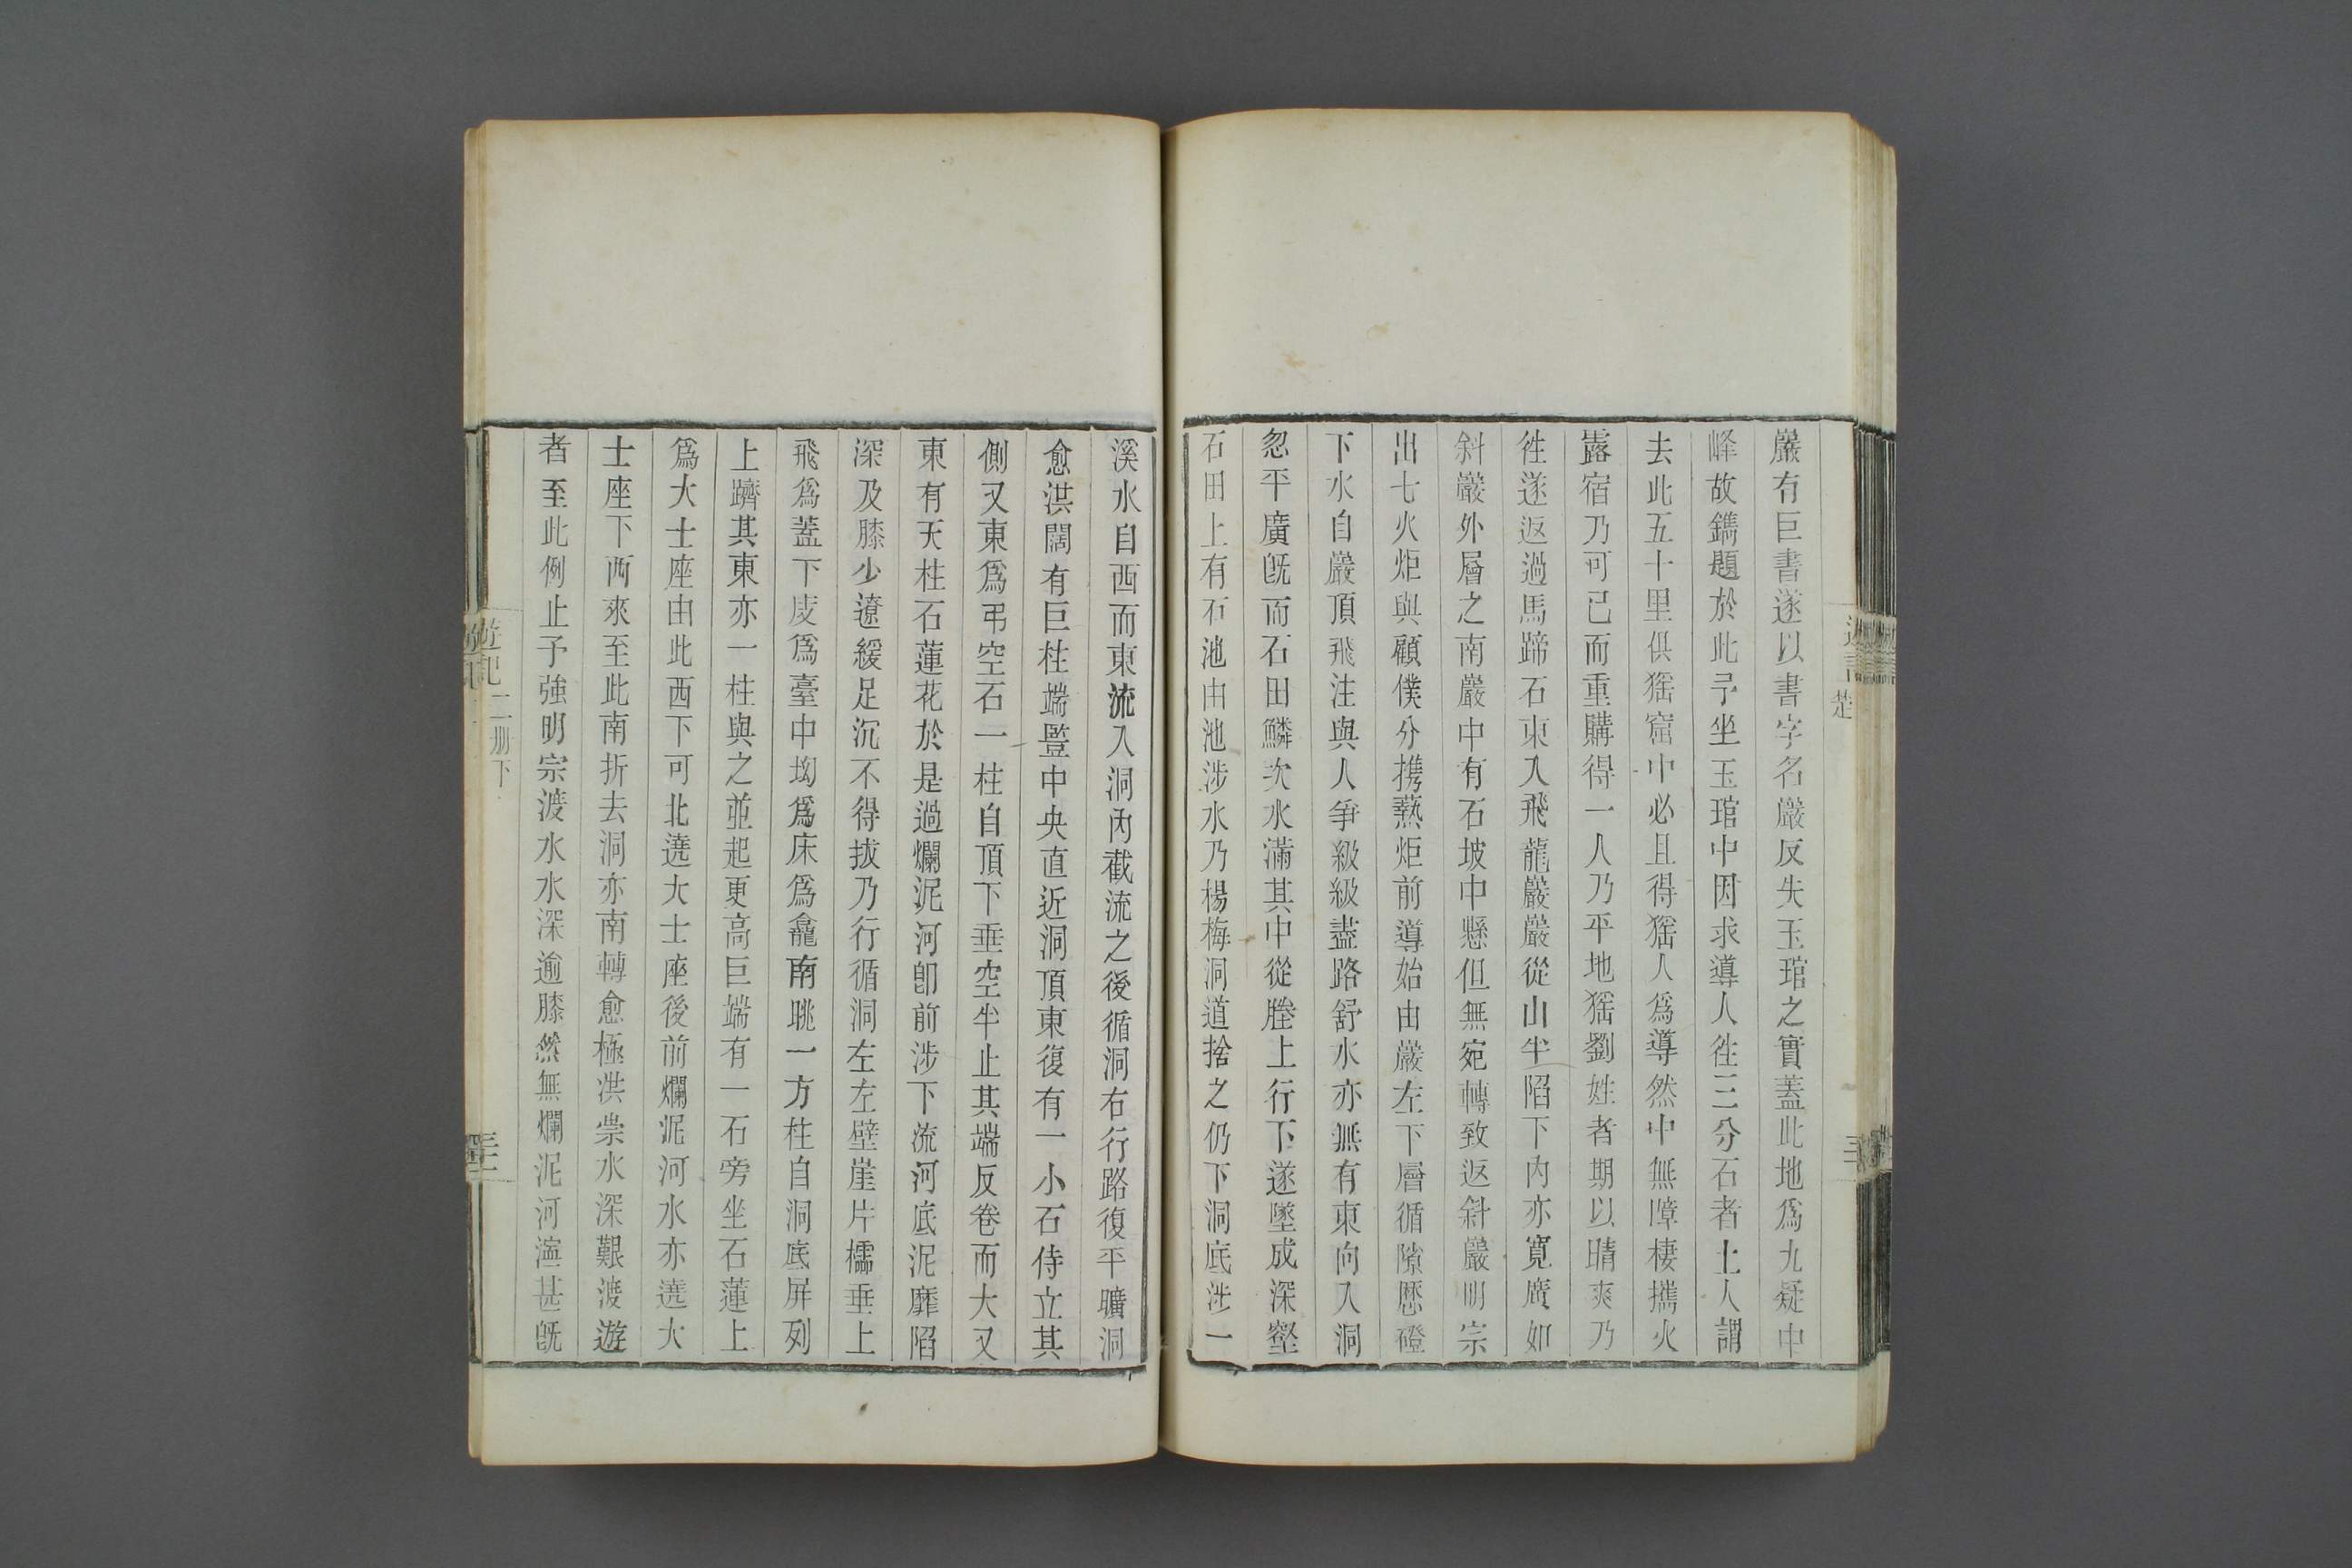 巖有巨書遂以書字名巖反失玉琯之實蓋此地爲九疑中
峰故鐫題於此予坐玉琯中因求導人徃三分石者土人謂
去此五十里俱猺窟中必且得猺人爲導然中無障棲攜火
露宿乃可已而重購得一人乃平地猺劉姓者期以晴爽乃
徃遂返過馬蹄石東入飛龍巖巖從山半陷下內亦寬廣如
斜巖外層之南巖中有石坡中懸但無宛轉致返斜巖明宗
出七火炬與顧僕分携爇炬前導始由巖左下層循隙歷磴
下水自巖頂飛注與人爭級級盡路舒水亦無有東向入洞
忽平廣既而石田鱗次水滿其中從塍上行下遂墜成深壑
石田上有石池由池涉水乃楊梅洞道捨之仍下洞底涉一
溪水自西而東流入洞內截流之後循洞右行路復平曠洞
愈洪闊有巨柱端豎中央直近洞頂東復有一小石侍立其
側又東爲弔空石一柱自頂下垂空半止其端反卷而大又
東有天柱石蓮花於是過爛泥河卽前涉下流河底泥靡陷
深及膝少遼緩足沉不得拔乃行循洞左左壁崖片檽垂上
飛爲蓋下庋爲臺中坳爲床爲龕南眺一方柱自洞底屏列
上躋其東亦一柱與之並起更高巨端有一石旁坐石蓮上
爲大士座由此西下可北遶大士座後前爛泥河水亦遶大
士座下西來至此南折去洞亦南轉愈極洪崇水深艱渡遊
者至此例止予強明宗渡水水深逾膝然無爛泥河濘甚既
遊記 二冊下